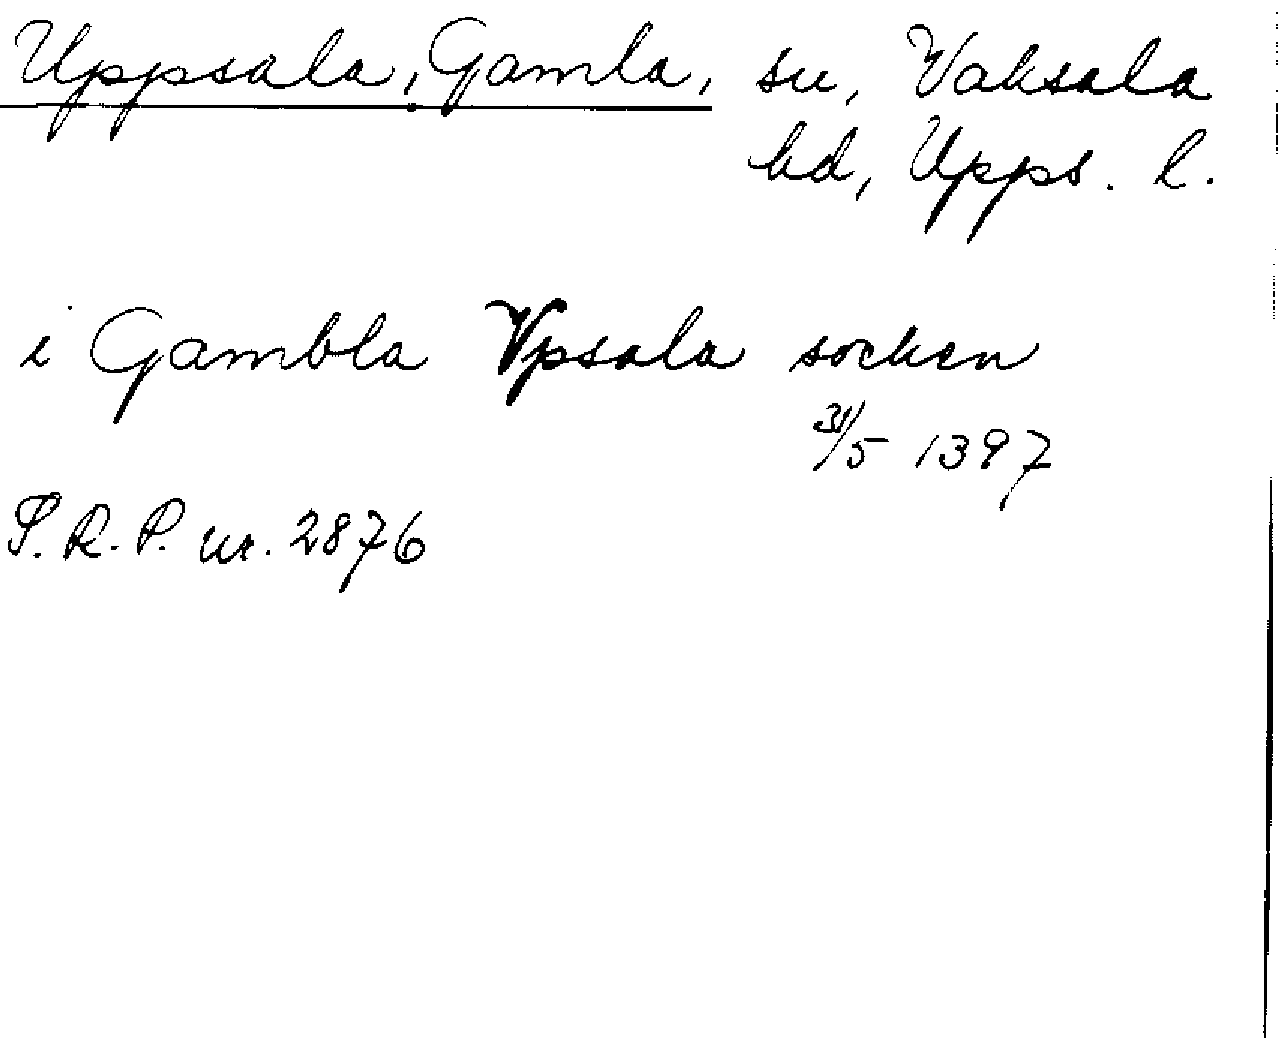 Uppsala, Gamla, sn, Vaksala
hd, Upps. l.
i Gambla Vpsala socken
31/5 1397
S.R.P. nr. 2876